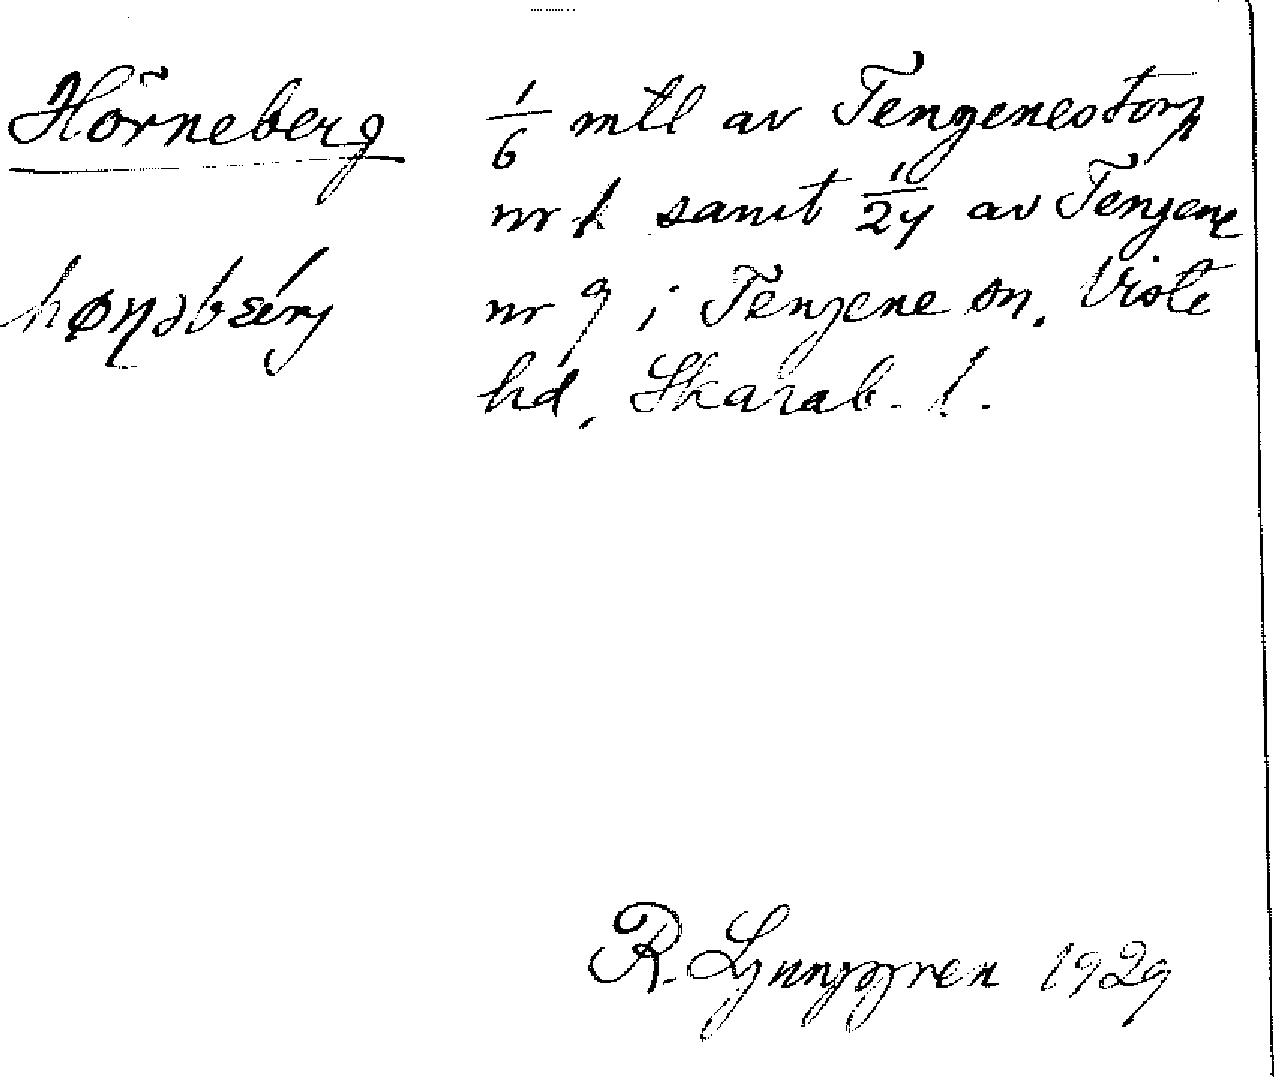 Hörneberg
1/6 mtl av Tengenestorp
nr 1 samt 1/24 av Tengene
nr 9 i Tengene sn. Viste
hd, Skarab. l.
R. Ljunggren 1929